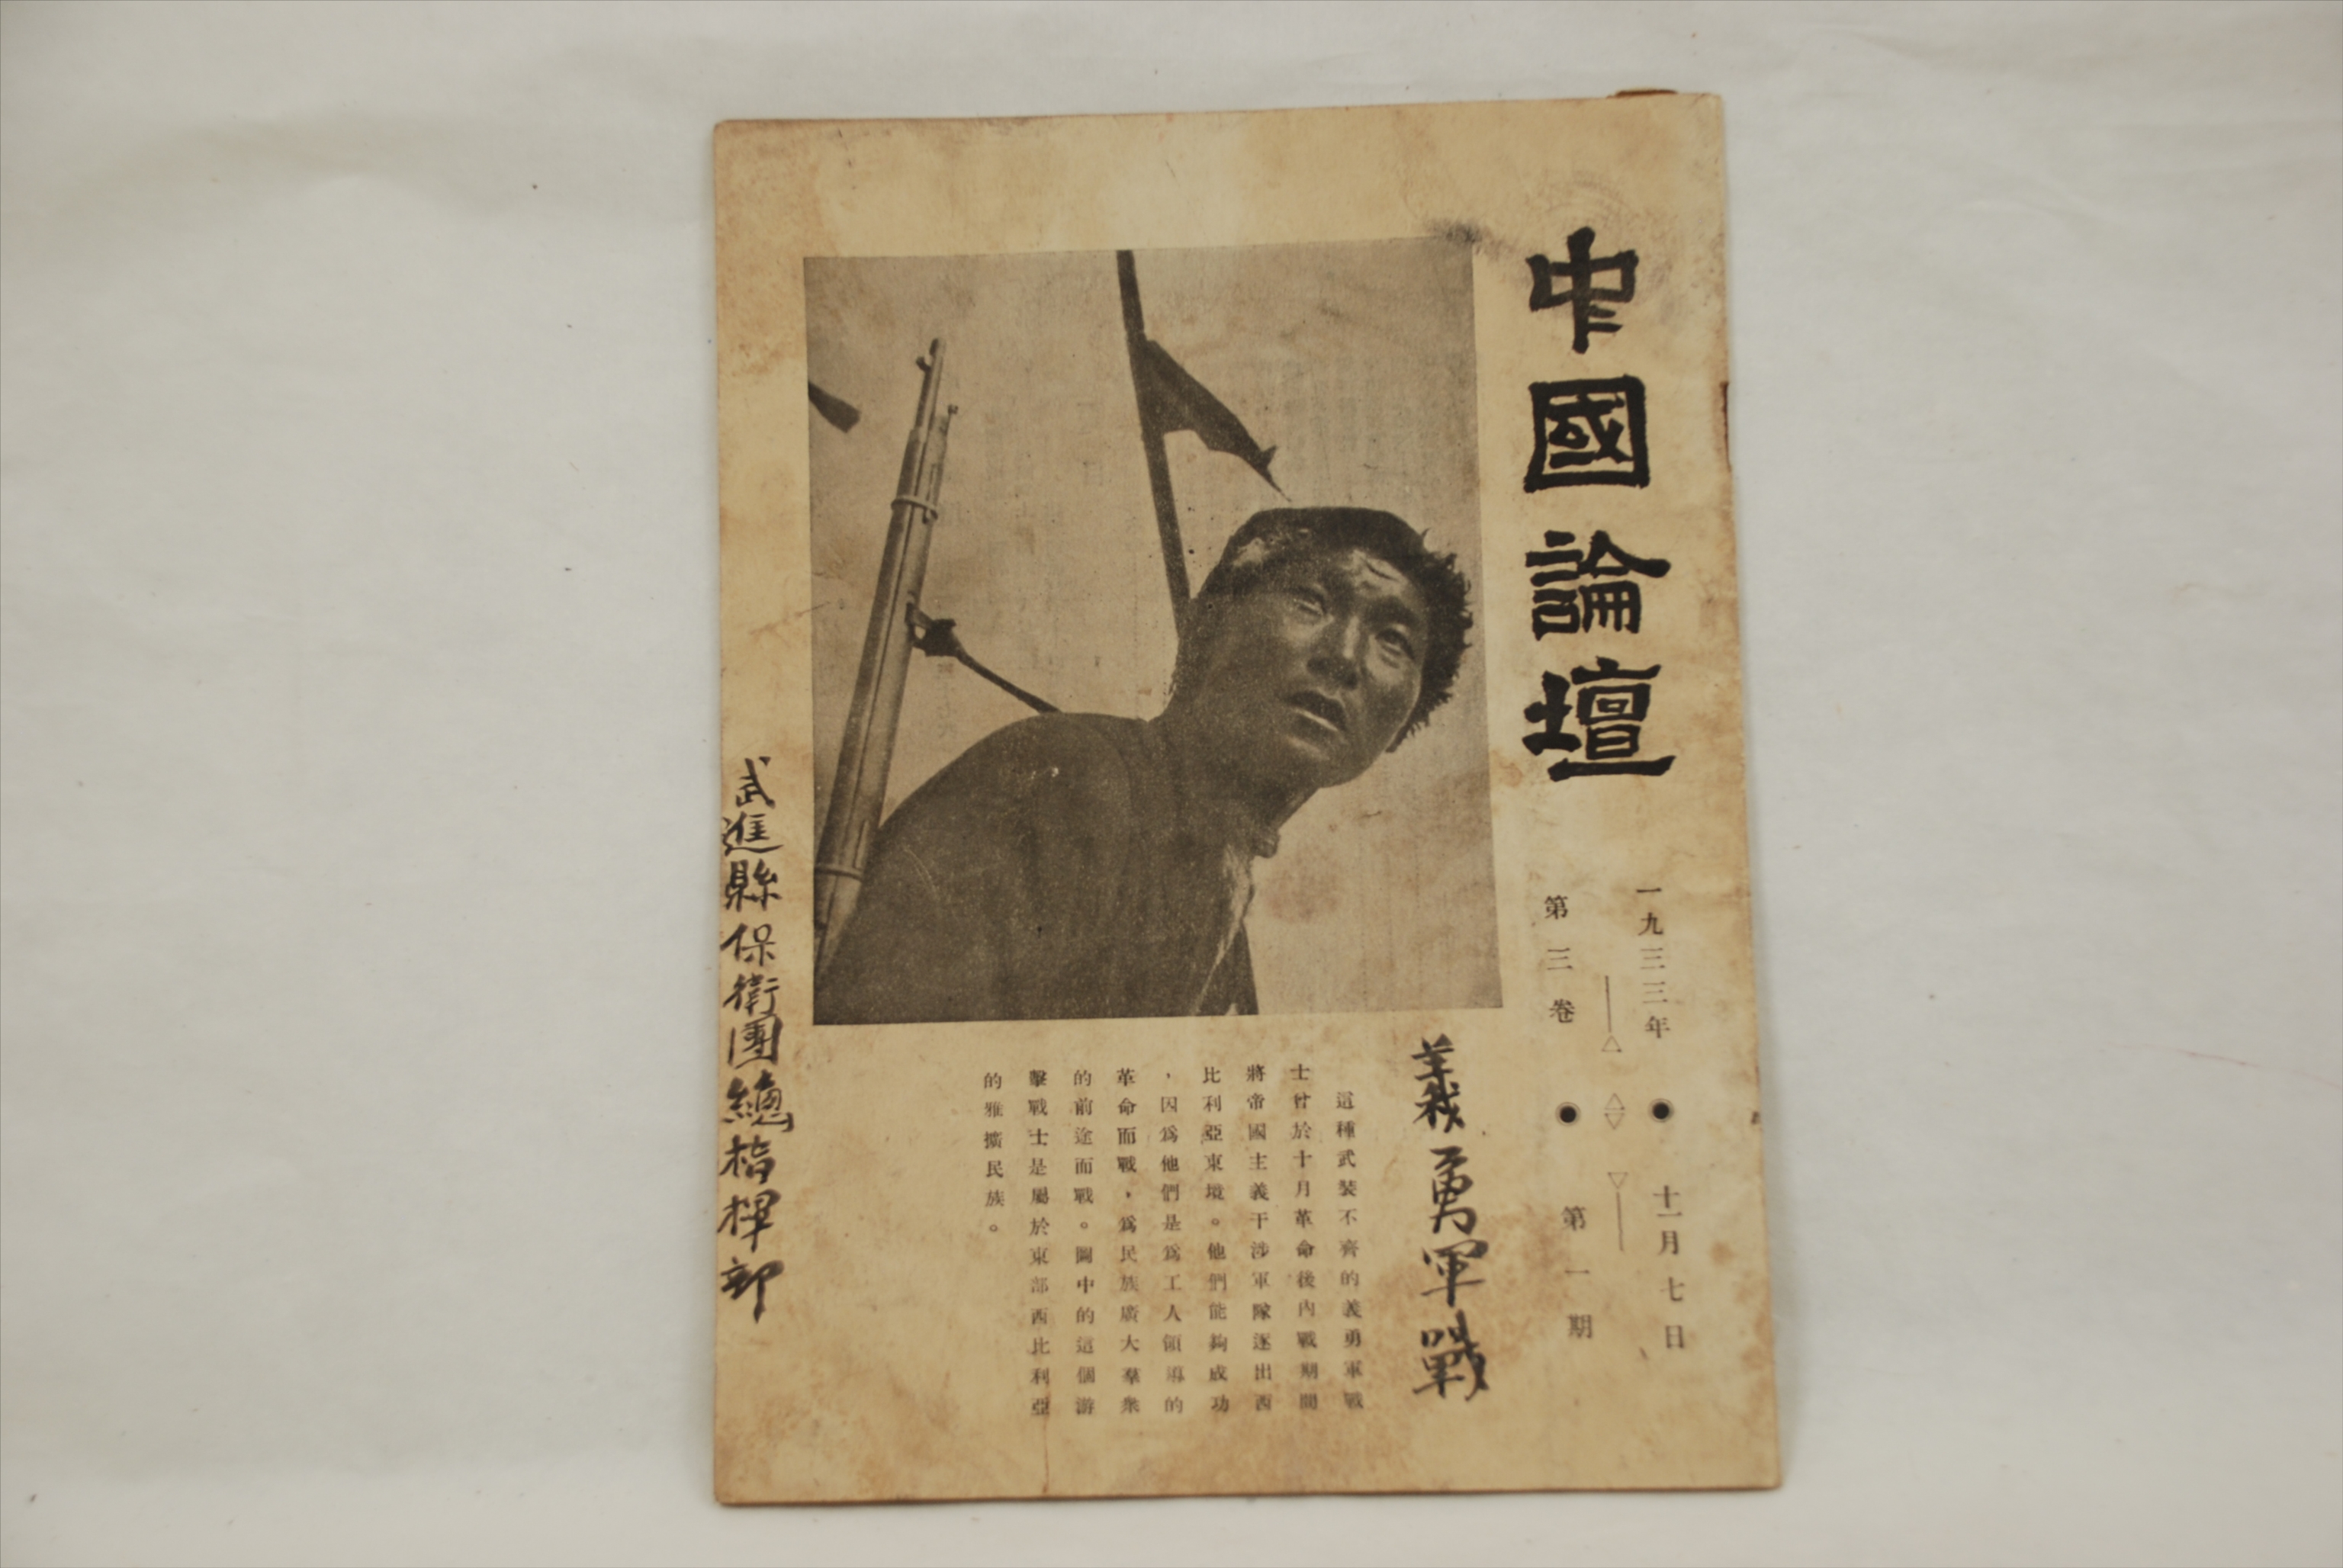 中國論壇
一九三三年 ● 十一月七日
第三卷 ● 第一期
義勇軍戰
這種武裝不齊的義勇軍戰
士曾於十月革命後內戰期間
將帝國主義干涉軍隊逐出西
比利亞東境。他們能夠成功
，因爲他們是爲工人領導的
革命而戰，爲民族廣大羣衆
的前途而戰。圖中的這個游
擊戰士是屬於東部西比利亞
的雅擴民族。
武進縣保衛團總指揮部